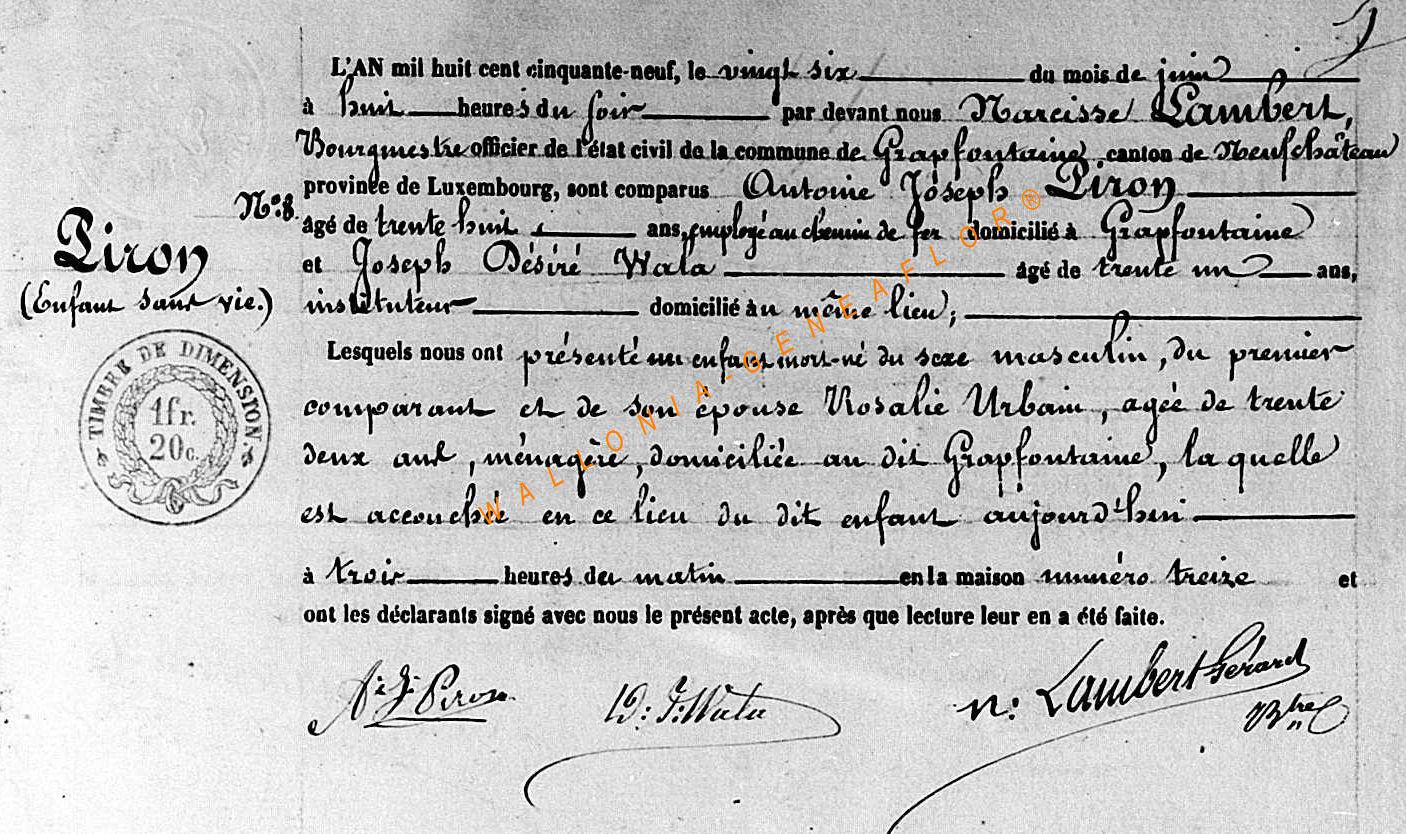 L'AN mil huit cent cinquante-neuf, le vingt six du mois de juin
à huit heures du soir par devant nous Narcisse Lambert,
Bourgmestre officier de l'état civil de la commune de Grapfontaine, canton de Neufchâteau
province de Luxembourg, sont comparus Antoine Joseph Piron
âgé de trente huit ans, employé au chemin de fer domicilié à Grapfontaine
et Joseph Désiré Wala âgé de trente un ans,
instituteur domicilié au même lieu;
Lesquels nous ont présenté un enfant mort-né du sexe masculin, du premier
comparant et de son épouse Rosalie Urbain, agée de trente
deux ans, ménagère, domiciliée au dit Grapfontaine, la quelle
est accouchée en ce lieu du dit enfant aujourd'hui
à trois heures du matin en la maison numéro treize et
ont les déclarants signé avec nous le présent acte, après que lecture leur en a été faite.
N.o 8.
Piron
(Enfant sans vie.)
TIMBRE DE DIMENSION.
1fr.
20c.
A: J: Piron
D: J: Wala
N: Lambert Gérard
Btre
WALLONIA-GENEAFLOR®